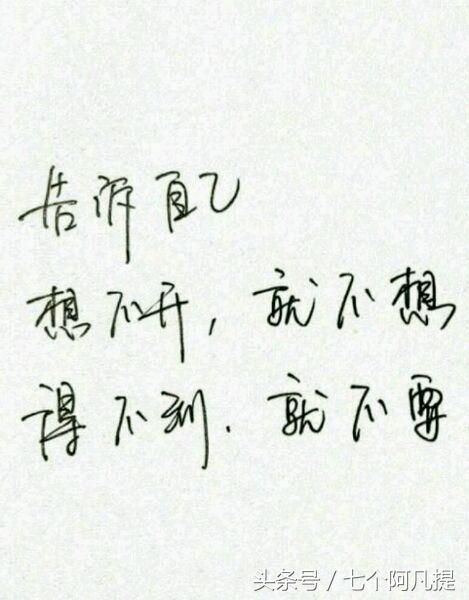 告诉自己
想不开，就不想
得不到．就不要
头条号／七个阿凡提